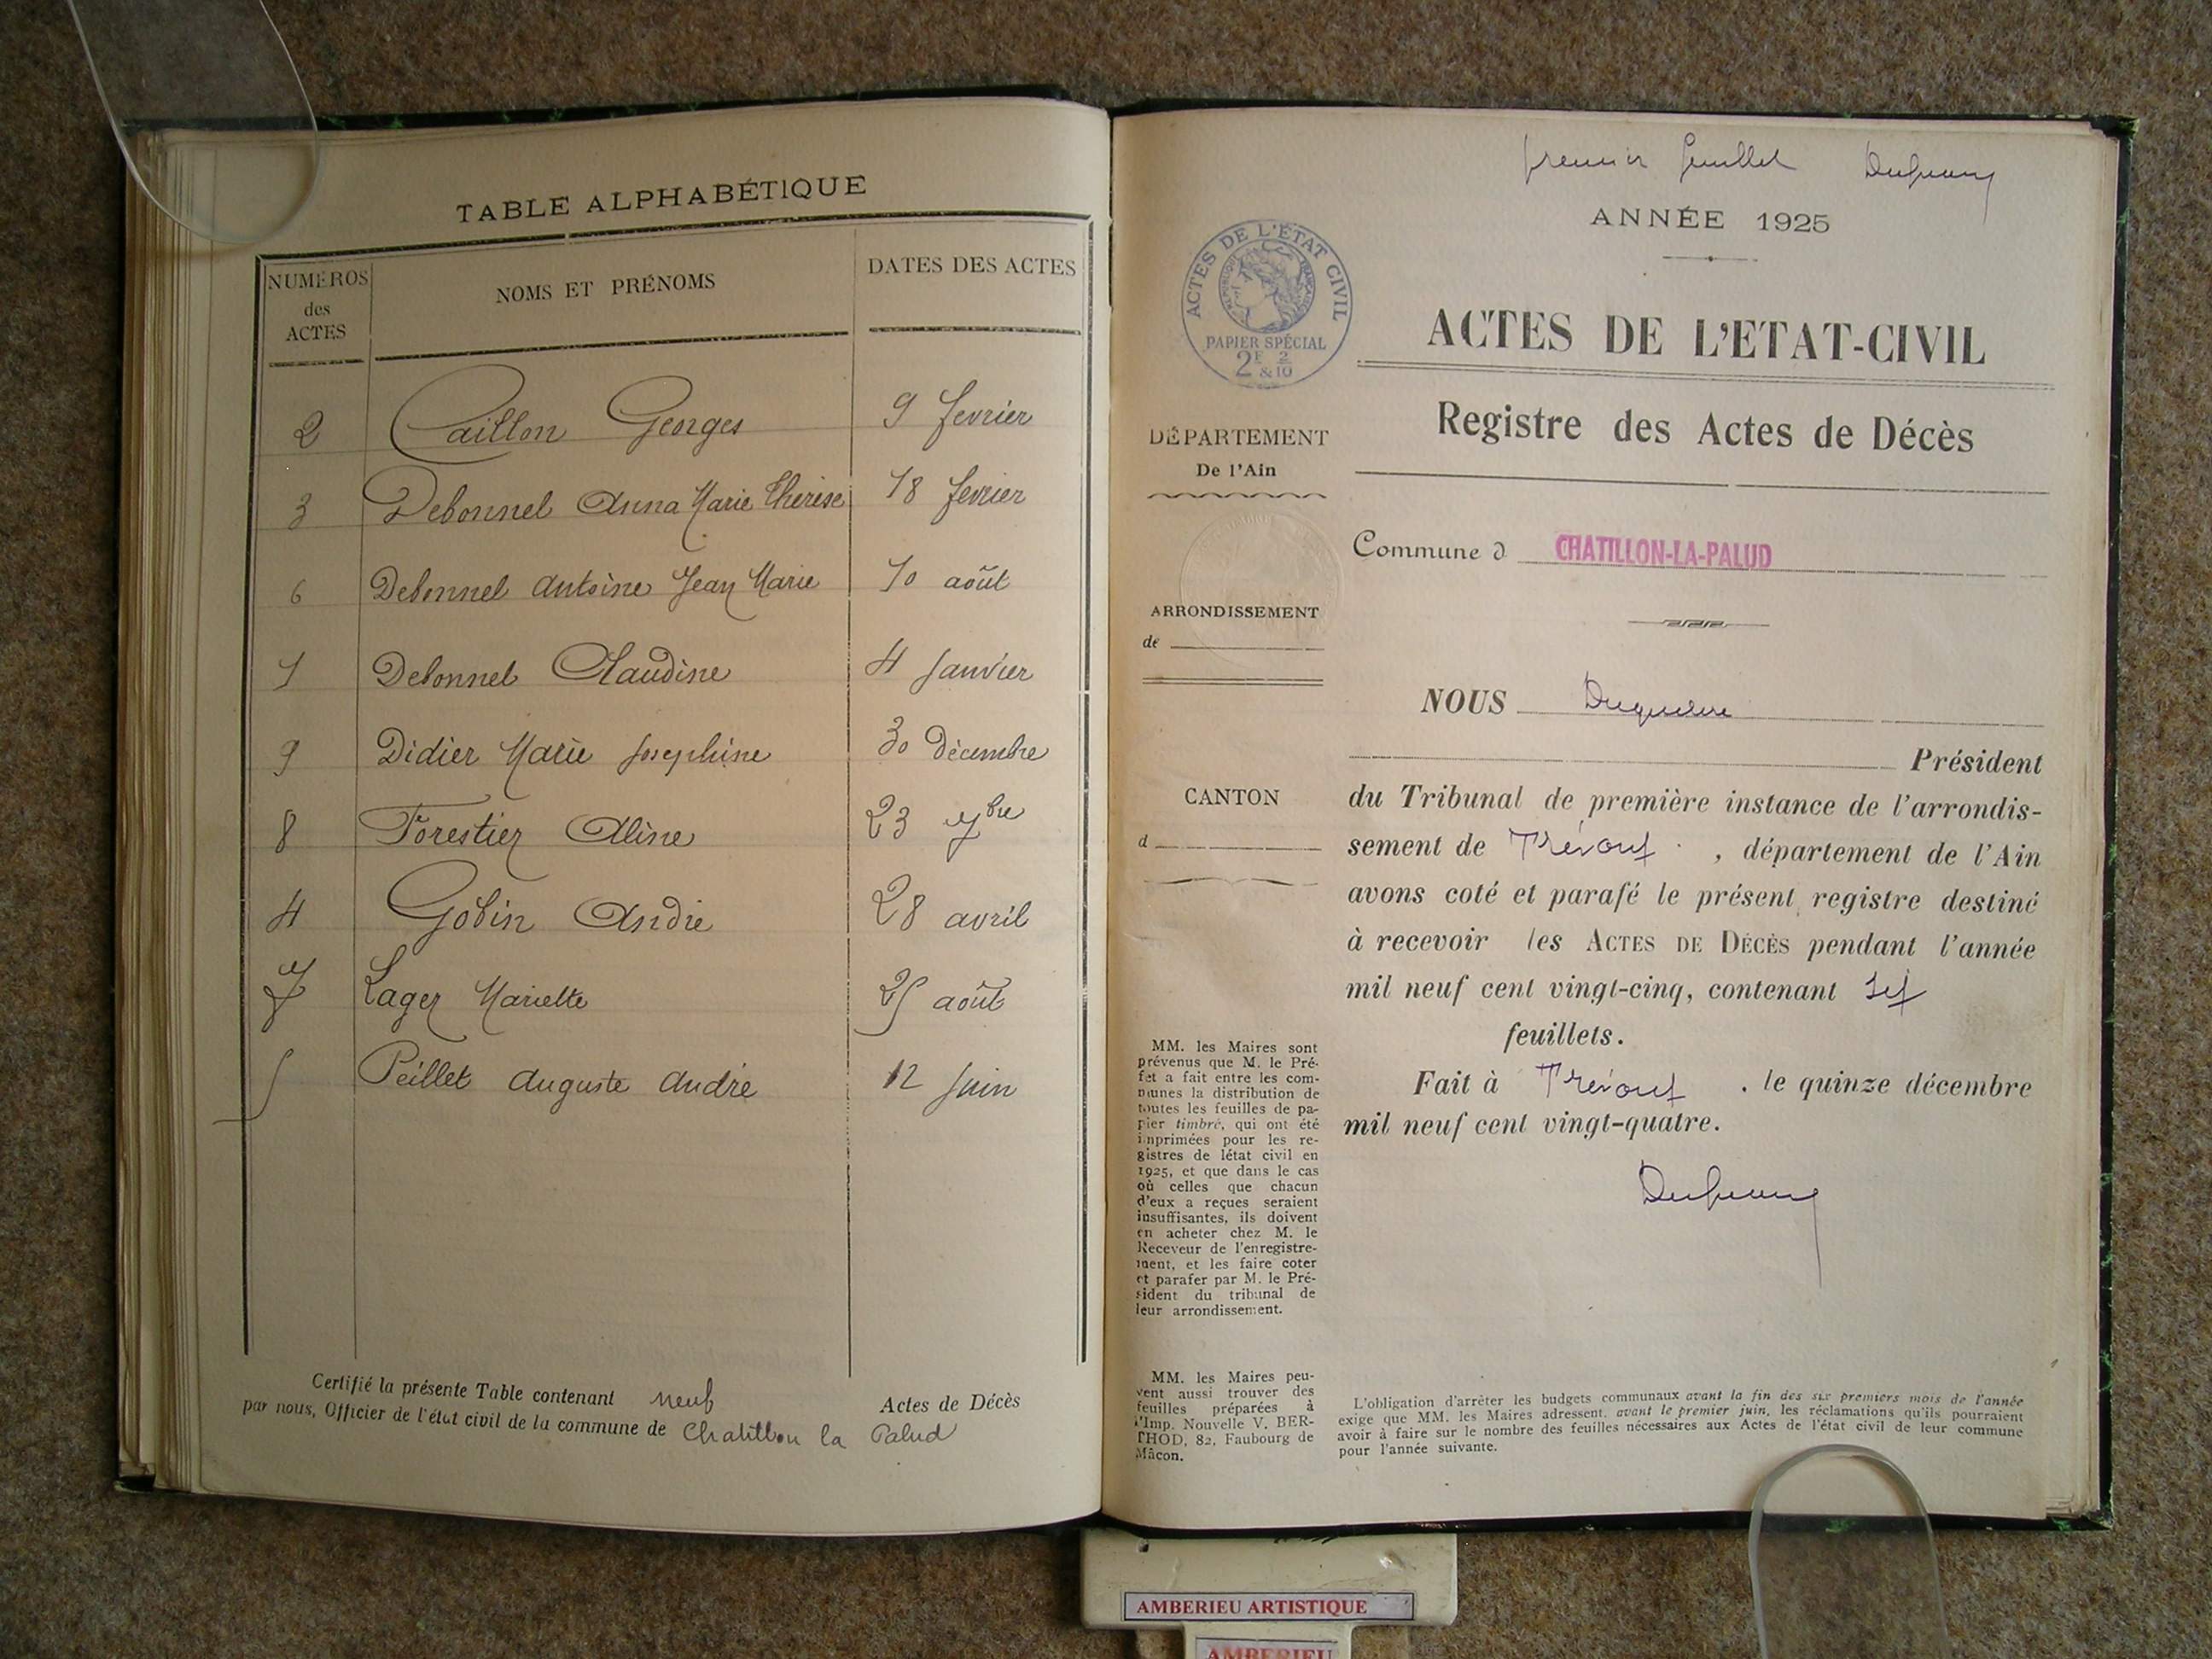 TABLE ALPHABÉTIQUE
NUMÉROS des ACTES NOMS ET PRÉNOMS DATES DES ACTES
2 Caillon Georges 9 fevrier
3 Debonnel Anna Marie Thérèse 18 fevrier
6 Debonnel Antoine Jean Marie 10 août
1 Debonnel Claudine 4 Janvier
9 Didier Marie Josephine 30 décembre
8 Forestier Aline 23 7bre
4 Gobin André 28 avril
7 Lager Mariette 25 août
5 Peillet Auguste André 12 Juin
Certifié la présente Table contenant neuf Actes de Décès
par nous, Officier de l'état civil de la commune de Chatillon la Palud
premier feuillet
ANNÉE 1925
ACTES DE L'ÉTAT CIVIL
RÉPUBLIQUE FRANÇAISE
PAPIER SPÉCIAL
2F & 2/10
ACTES DE L'ETAT-CIVIL
Registre des Actes de Décès
DÉPARTEMENT
De l'Ain
Commune d CHATILLON-LA-PALUD
ARRONDISSEMENT
de
NOUS
Président
CANTON
d
du Tribunal de première instance de l'arrondis-
sement de Trévoux, département de l'Ain
avons coté et parafé le présent registre destiné
à recevoir les ACTES DE DÉCÈS pendant l'année
mil neuf cent vingt-cinq, contenant six
feuillets.
Fait à Trévoux. le quinze décembre
mil neuf cent vingt-quatre.
MM. les Maires sont
prévenus que M. le Pré-
fet a fait entre les com-
munes la distribution de
toutes les feuilles de pa-
pier timbré, qui ont été
imprimées pour les re-
gistres de létat civil en
1925, et que dans le cas
où celles que chacun
d'eux a reçues seraient
insuffisantes, ils doivent
en acheter chez M. le
Receveur de l'enregistre-
ment, et les faire coter
et parafer par M. le Pré-
sident du tribunal de
leur arrondissement.
MM. les Maires peu-
vent aussi trouver des
feuilles préparées à
l'Imp. Nouvelle V. BER-
THOD, 82, Faubourg de
Mâcon.
L'obligation d'arrêter les budgets communaux avant la fin des six premiers mois de l'année
exige que MM. les Maires adressent, avant le premier juin, les réclamations qu'ils pourraient
avoir à faire sur le nombre des feuilles nécessaires aux Actes de l'état civil de leur commune
pour l'année suivante.
AMBERIEU ARTISTIQUE
AMBERIEU